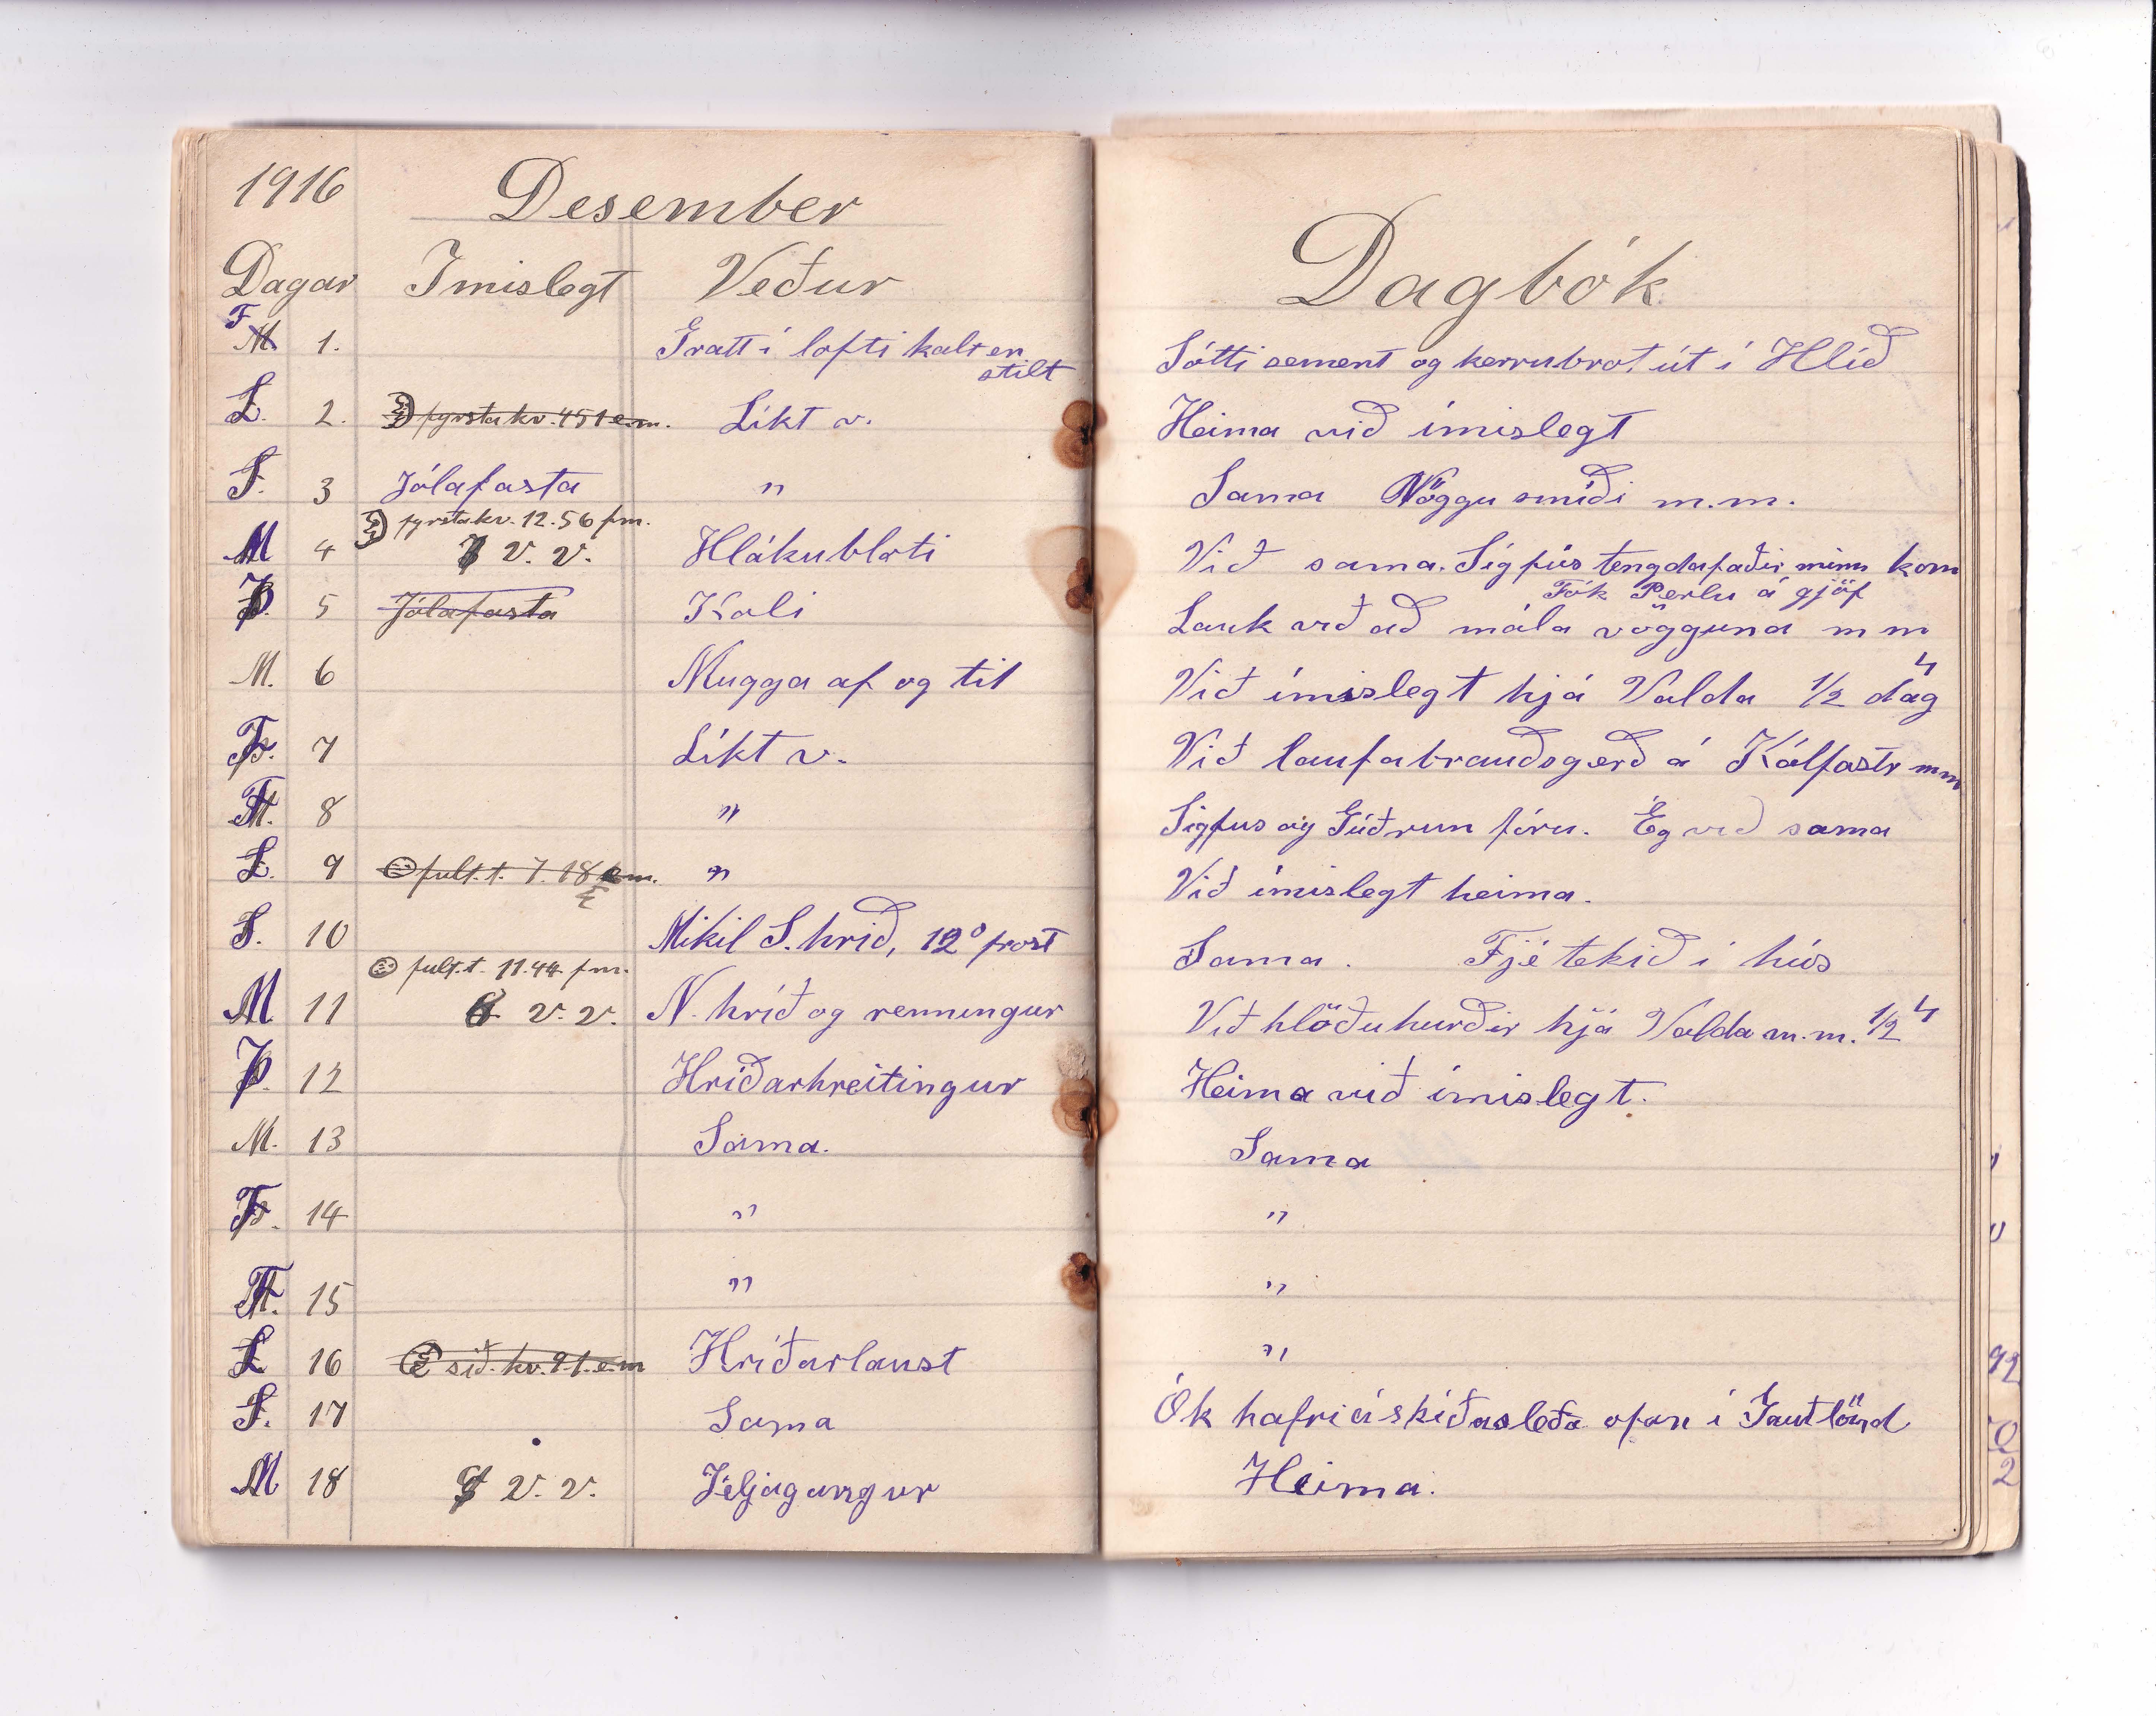 1916 Desember
Dagar Imislegt Veður
F 1. Grátt í lofti kalt en
stilt
L. 2. fyrsta kv. 451 e.m. Líkt v.
S. 3 Jólafasta "
fyrsta kv. 12.56 fm.
M 4 7 v. v. Hlákubloti
Þ. 5 Jólafasta Kali
M. 6 Mugga af og til
F. 7 Líkt v.
F. 8 "
L. 9 fult. t. 7. 18 em. "
S. 10 Mikil S. hrið, 12° frost
fult. t. 11.44 fm.
M 11 8 v. v. N. hríð og renningur
Þ. 12 Hríðarhreitingur
M. 13 Sama.
F. 14 "
F. 15 "
L 16 síð. kv. 91. e.m Hríðarlaust
S. 17 Sama
M 18 9 v. v. Jeljagangur
Dagbók
Sótti sement og kerrubrot út í Hlíð
Heima við ímislegt
Sama Vöggu smíði m.m.
Við sama. Sigfús tengdafaðir minn kom
Tók Perlu á gjöf
Lauk við að mála vögguna m m
Við ímislegt hjá Valda 1/2 dag 4
Við laufabrauðsgerð á Kálfastr mm
Sigfus og Guðrun fóru. Ég við sama
Við ímislegt heima.
Sama. Fjé tekið í hús
Við hlöðuhurðir hjá Valda m.m. 1/2 4
Heima við ímislegt.
Sama
"
"
"
Ók hafri á skíðasleða ofan í Gautlönd
Heima.
92
0
2